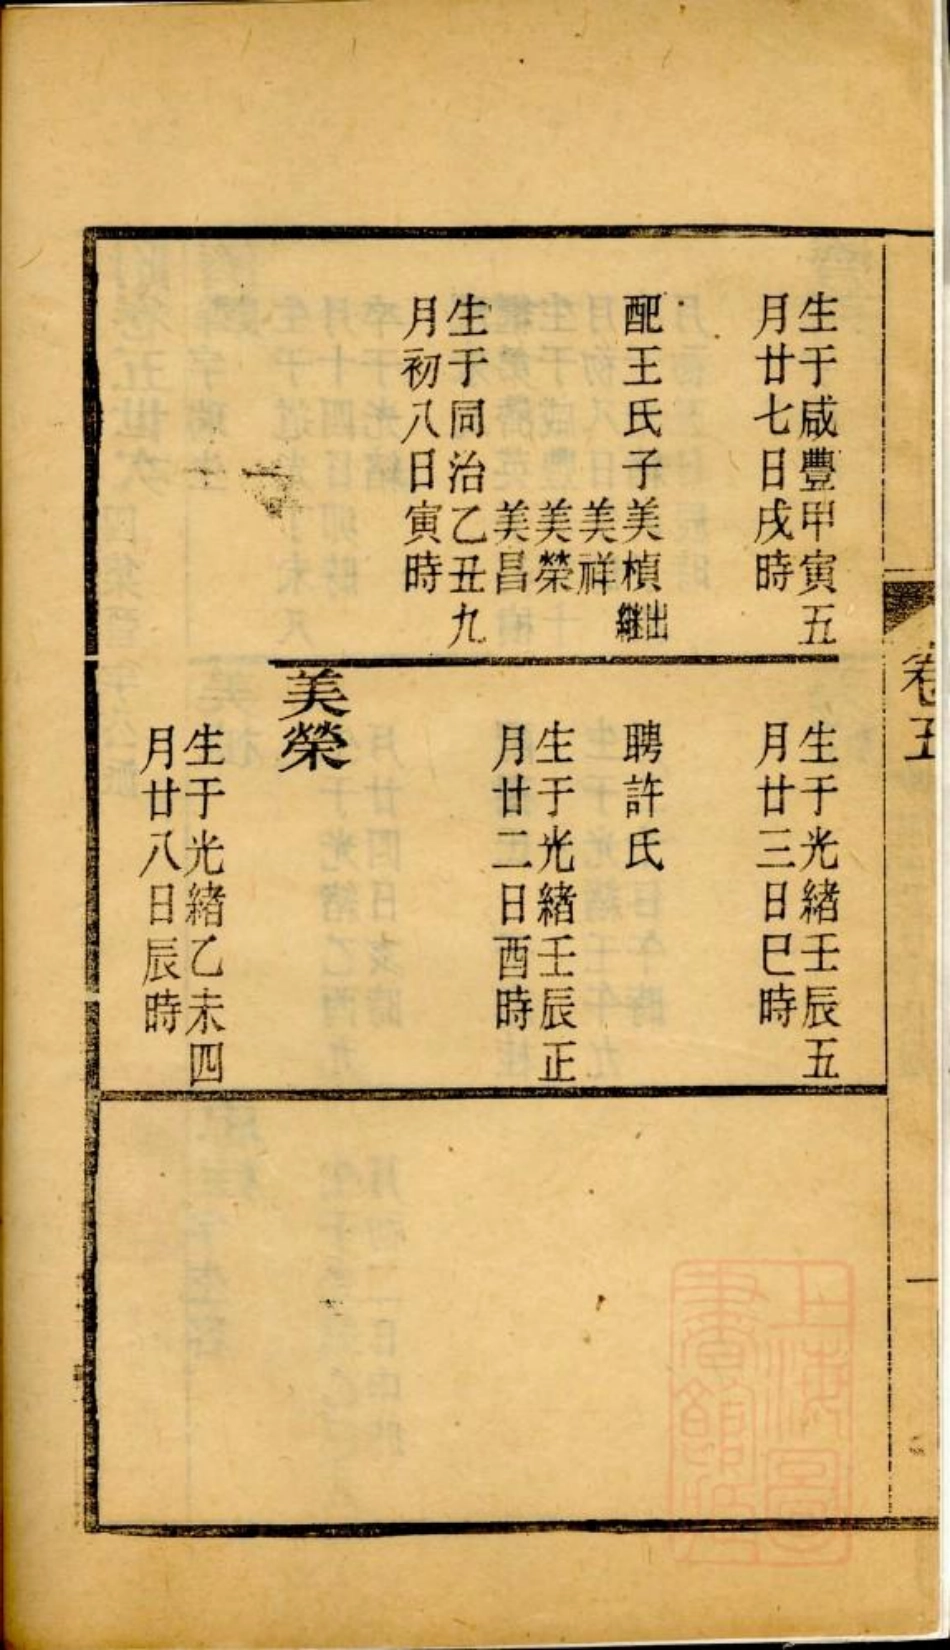 卷五
生于咸豐甲寅五
月廿七日戌時
配王氏子美楨出繼
美祥
美榮
美昌
生于同治乙丑九
月初八日寅時
生于光緒壬辰五
月廿三日巳時
聘許氏
生于光緒壬辰正
月廿二日酉時
美榮
生于光緒乙未四
月廿八日辰時
一
上海圖
書館藏